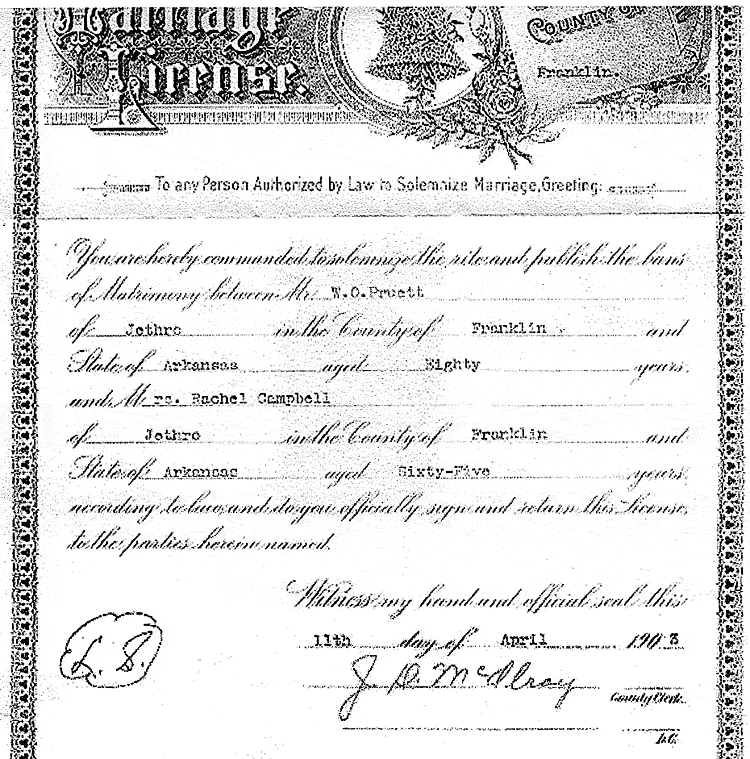 Marriage
License.
COUNTY OF
Franklin.
To any Person Authorized by Law to Solemnize Marriage, Greeting:
You are hereby commanded to solemnize the rite and publish the bans
of Matrimony between Mr. W.O.Pruett
of Jethro in the County of Franklin and
State of Arkansas aged Eighty years,
and Mrs. Rachel Campbell
of Jethro in the County of Franklin and
State of Arkansas aged Sixty-Five years,
according to law, and do you officially sign and return this License,
to the parties herein named.
Witness my hand and official seal this
11th day of April 1903
L. S.
McElroy
County Clerk.
D.C.